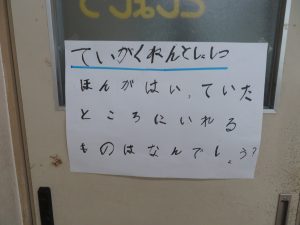 ていがくねんとしょしつ
ほんがはいっていた
ところにいれる
ものはなんでしょう?